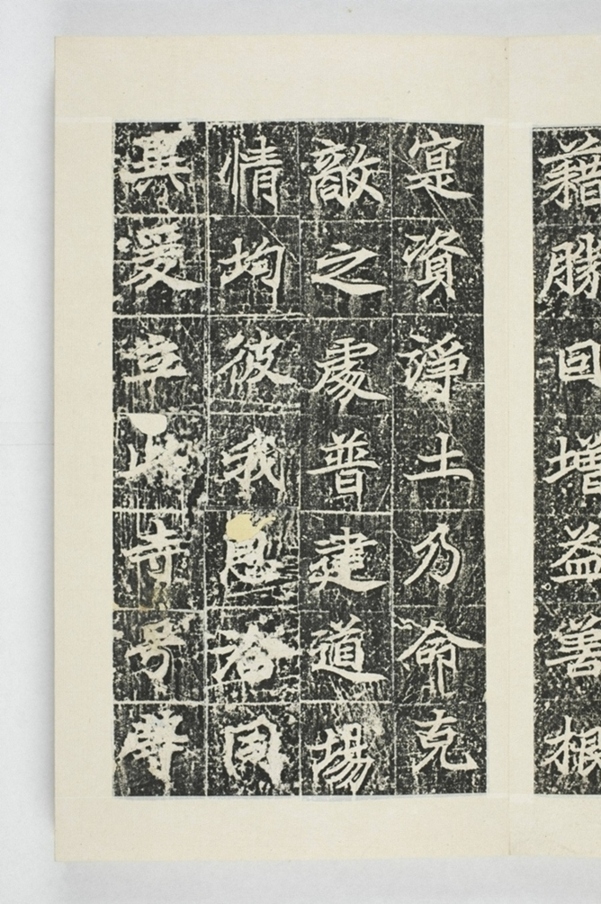 藉勝回增益善根
寔資淨土乃命克
敵之處普建道場
情均彼我恩洽同
異爰立此寺号䓁